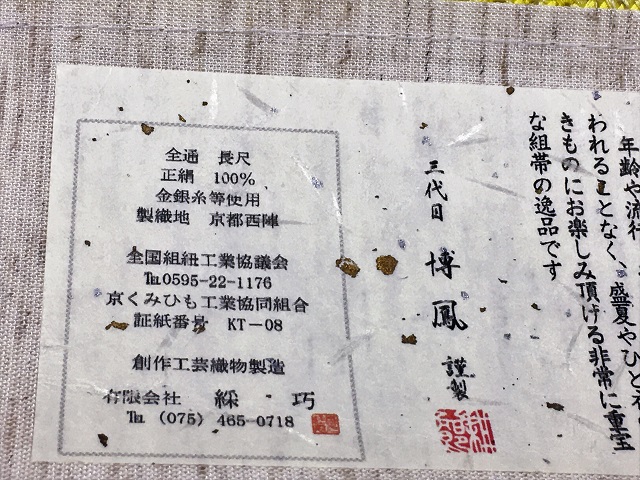 年齢や流行
われることなく、盛夏やひとえ
きものにお楽しみ頂ける非常に重宝
な組帯の逸品です
三代目 博鳳 謹製
全通 長尺
正絹 100%
金銀糸等使用
製織地 京都西陣
全国組紐工業協議会
℡0595-22-1176
京くみひも工業協同組合
証紙番号 KT-08
創作工芸織物製造
有限会社 綵巧
℡ (075) 465-0718